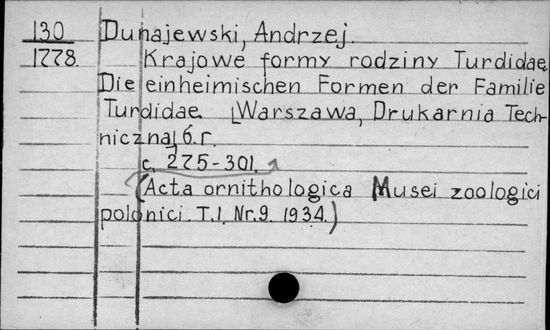 130 Dunajewski, Andrzej.
1778. Krajowe formy rodziny Turdidae.
Die einheimischen Formen der Familie
Turdidae. [Warszawa, Drukarnia Tech-
niczna] б.г.
с. 275-301.
(Acta ornithologica Musei zoologici
polonici. T.I. Nr.9. 1934.)